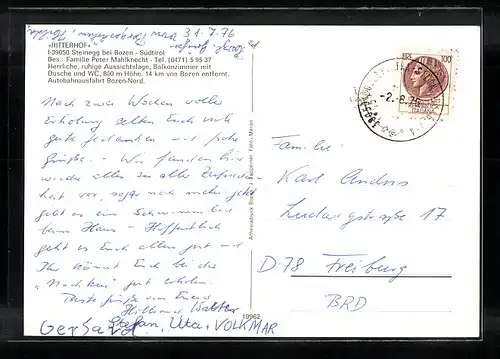 31.7.76
«RITTERHOF»
I-39050 Steinegg bei Bozen - Südtirol
Bes.: Familie Peter Mahlknecht - Tel. (0471) 5 95 37
Herrliche, ruhige Aussichtslage, Balkonzimmer mit
Dusche und WC, 880 m Höhe, 14 km von Bozen entfernt.
Autobahnausfahrt Bozen-Nord.
Nach zwei Wochen voller
Erholung selten Euch viele
gute Gedanken und frohe
Grüße. Wir fanden hier
wieder alles zu aller Zufrieden-
heit vor, sogar noch mehr, jetzt
gibt es ein Schwimmbad
beim Haus - Hoffentlich
geht es Euch allen gut und
Ihr könnt Euch bei der
"Nachkur" gut erholen.
Grüße von Eurer
Walter
Gerhard, Stefan, Uta, VOLKMAR
19962
100
-2.8.76
Familie
Karl Andris
Ludwigstraße 17
D-78 Freiburg
BRD